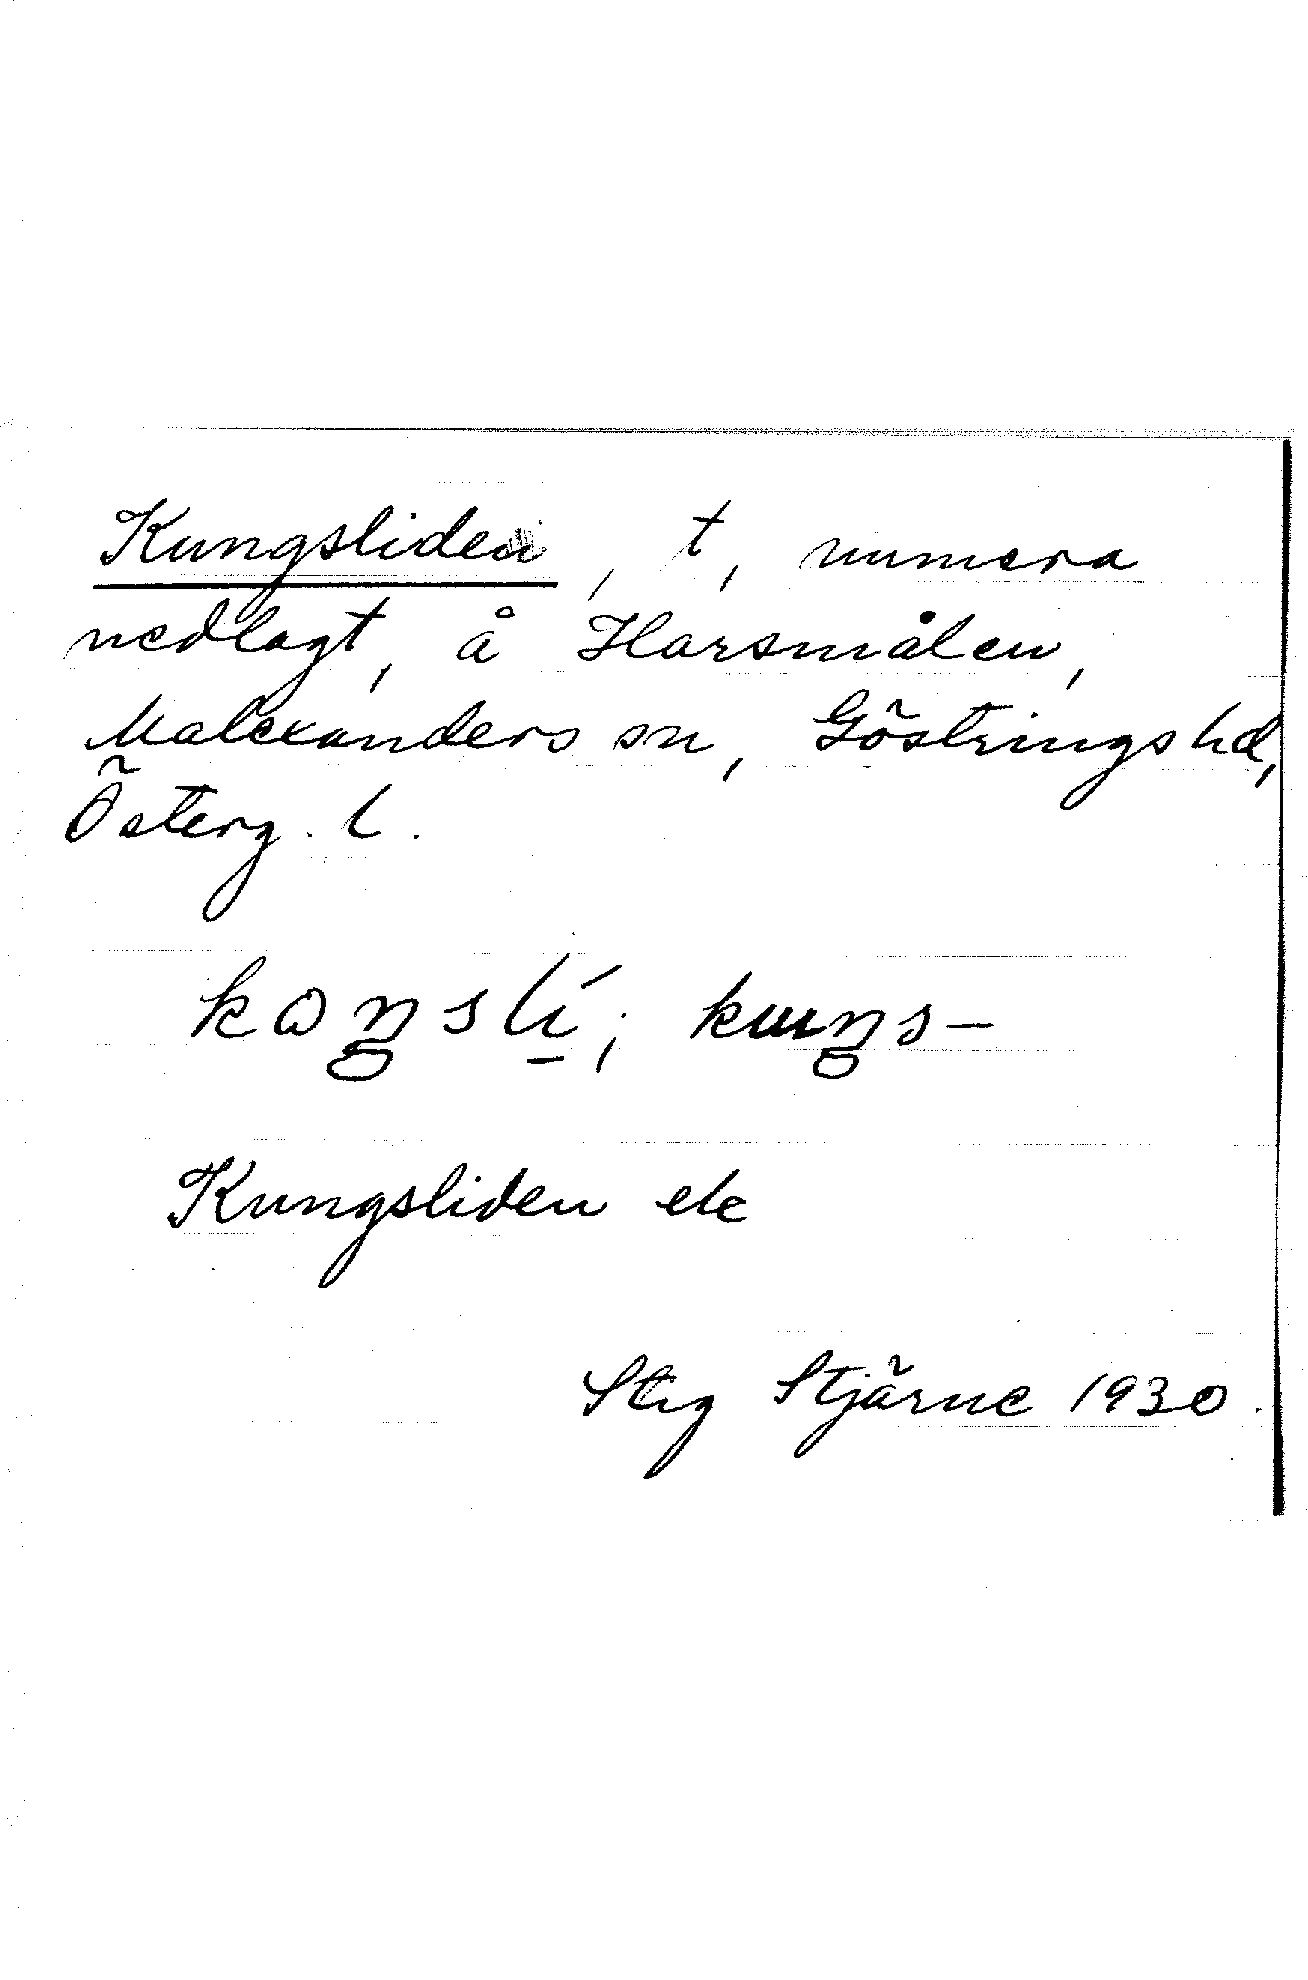 Kungsliden, t, numera
nedlagt, å Harsmålen,
Malexanders sn, Göstrings hd,
Österg. l.
koŋslí; kuŋs–
Kungsliden ek
Stig Stjärne 1930.